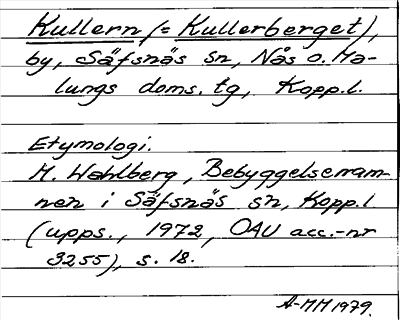 Kullern (= Kullerberget),
by, Säfsnäs sn, Nås o. Ma-
lungs doms. tg, Kopp.l.
Etymologi.
M. Wahlberg, Bebyggelsenam-
nen i Säfsnäs sn, Kopp.l
(upps., 1972, OAU acc.-nr
3255), s. 18.
A-MM 1979.